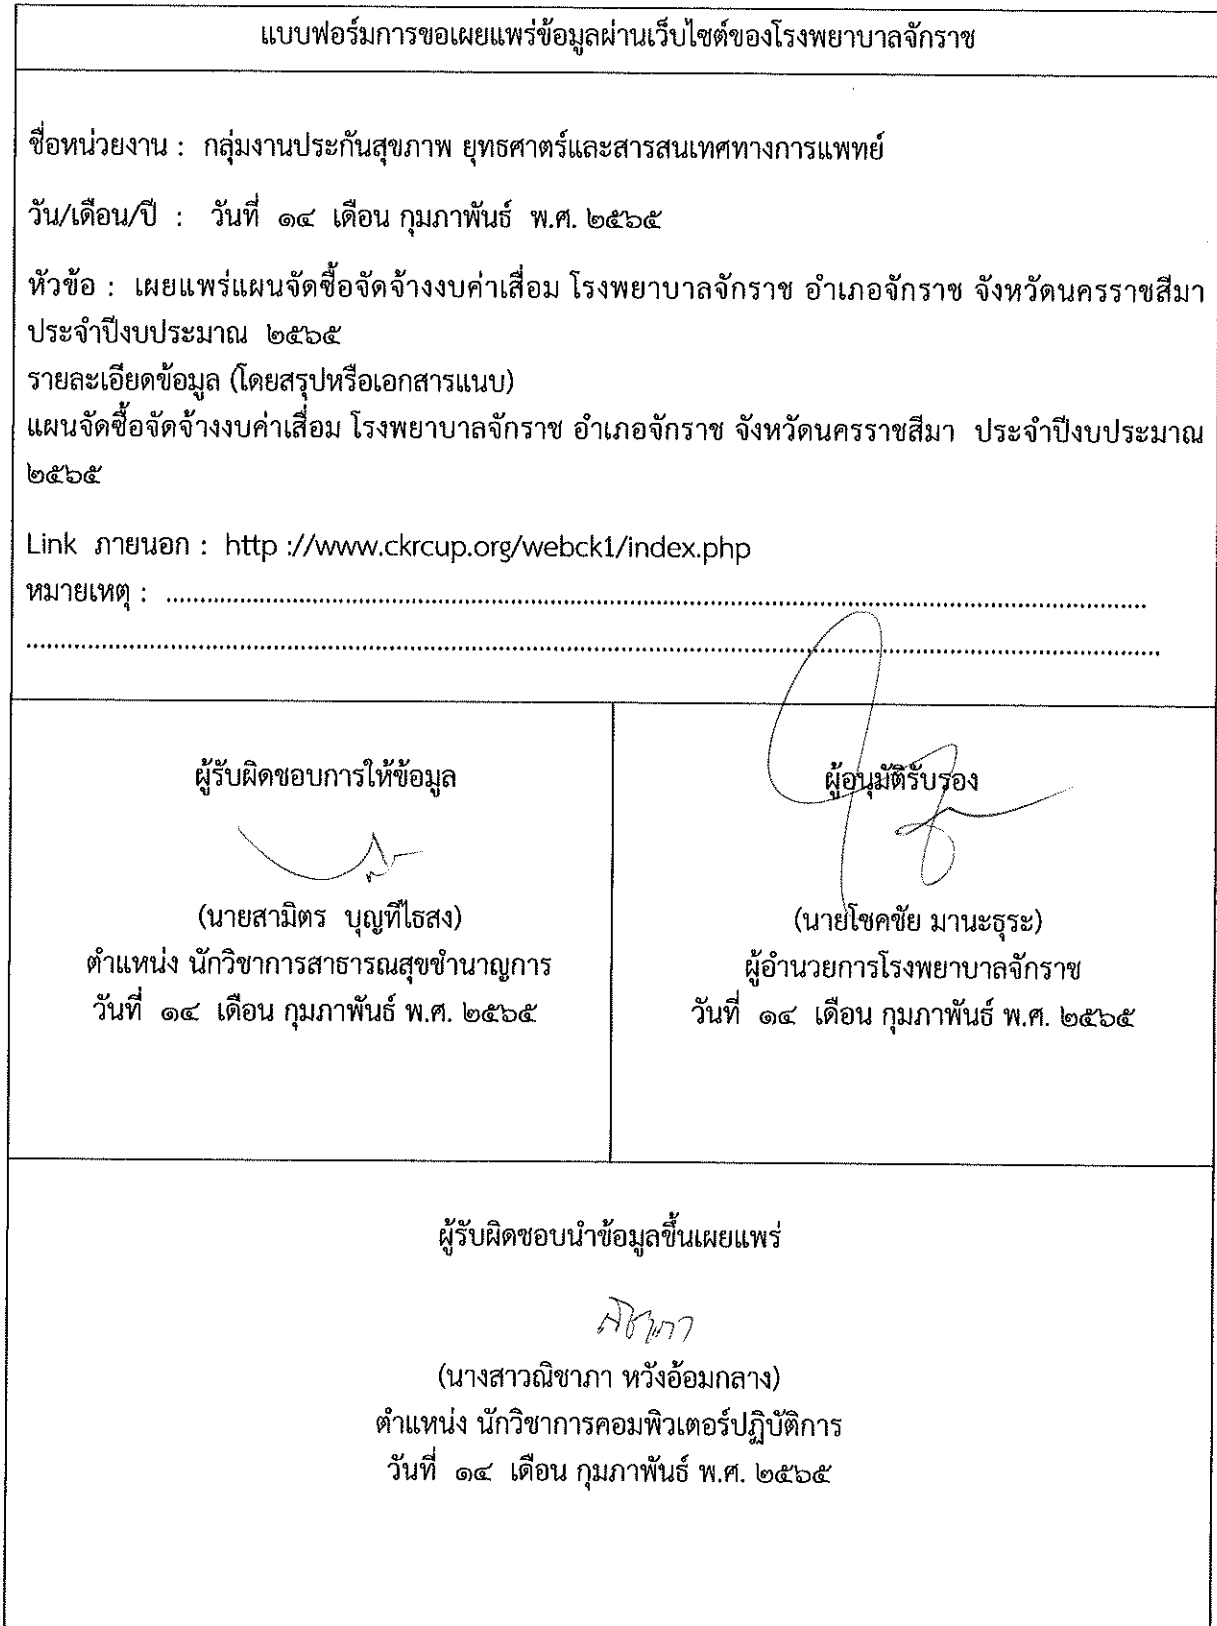 แบบฟอร์มการขอเผยแพร่ข้อมูลผ่านเว็บไซต์ของโรงพยาบาลจักราช
ชื่อหน่วยงาน : กลุ่มงานประกันสุขภาพ ยุทธศาตร์และสารสนเทศทางการแพทย์
วัน/เดือน/ปี : วันที่ ๑๔ เดือน กุมภาพันธ์ พ.ศ. ๒๕๖๕
หัวข้อ : เผยแพร่แผนจัดซื้อจัดจ้างงบค่าเสื่อม โรงพยาบาลจักราช อำเภอจักราช จังหวัดนครราชสีมา
ประจำปีงบประมาณ ๒๕๖๕
รายละเอียดข้อมูล (โดยสรุปหรือเอกสารแนบ)
แผนจัดซื้อจัดจ้างงบค่าเสื่อม โรงพยาบาลจักราช อำเภอจักราช จังหวัดนครราชสีมา ประจำปีงบประมาณ
๒๕๖๕
Link ภายนอก : http ://www.ckrcup.org/webck1/index.php
หมายเหตุ : ....................................................................................................
....................................................................................................
ผู้รับผิดชอบการให้ข้อมูล
(นายสามิตร บุญทีไธสง)
ตำแหน่ง นักวิชาการสาธารณสุขชำนาญการ
วันที่ ๑๔ เดือน กุมภาพันธ์ พ.ศ. ๒๕๖๕
ผู้อนุมัติรับรอง
(นายโชคชัย มานะธุระ)
ผู้อำนวยการโรงพยาบาลจักราช
วันที่ ๑๔ เดือน กุมภาพันธ์ พ.ศ. ๒๕๖๕
ผู้รับผิดชอบนำข้อมูลขึ้นเผยแพร่
ณิชาภา
(นางสาวณิชาภา หวังอ้อมกลาง)
ตำแหน่ง นักวิชาการคอมพิวเตอร์ปฏิบัติการ
วันที่ ๑๔ เดือน กุมภาพันธ์ พ.ศ. ๒๕๖๕